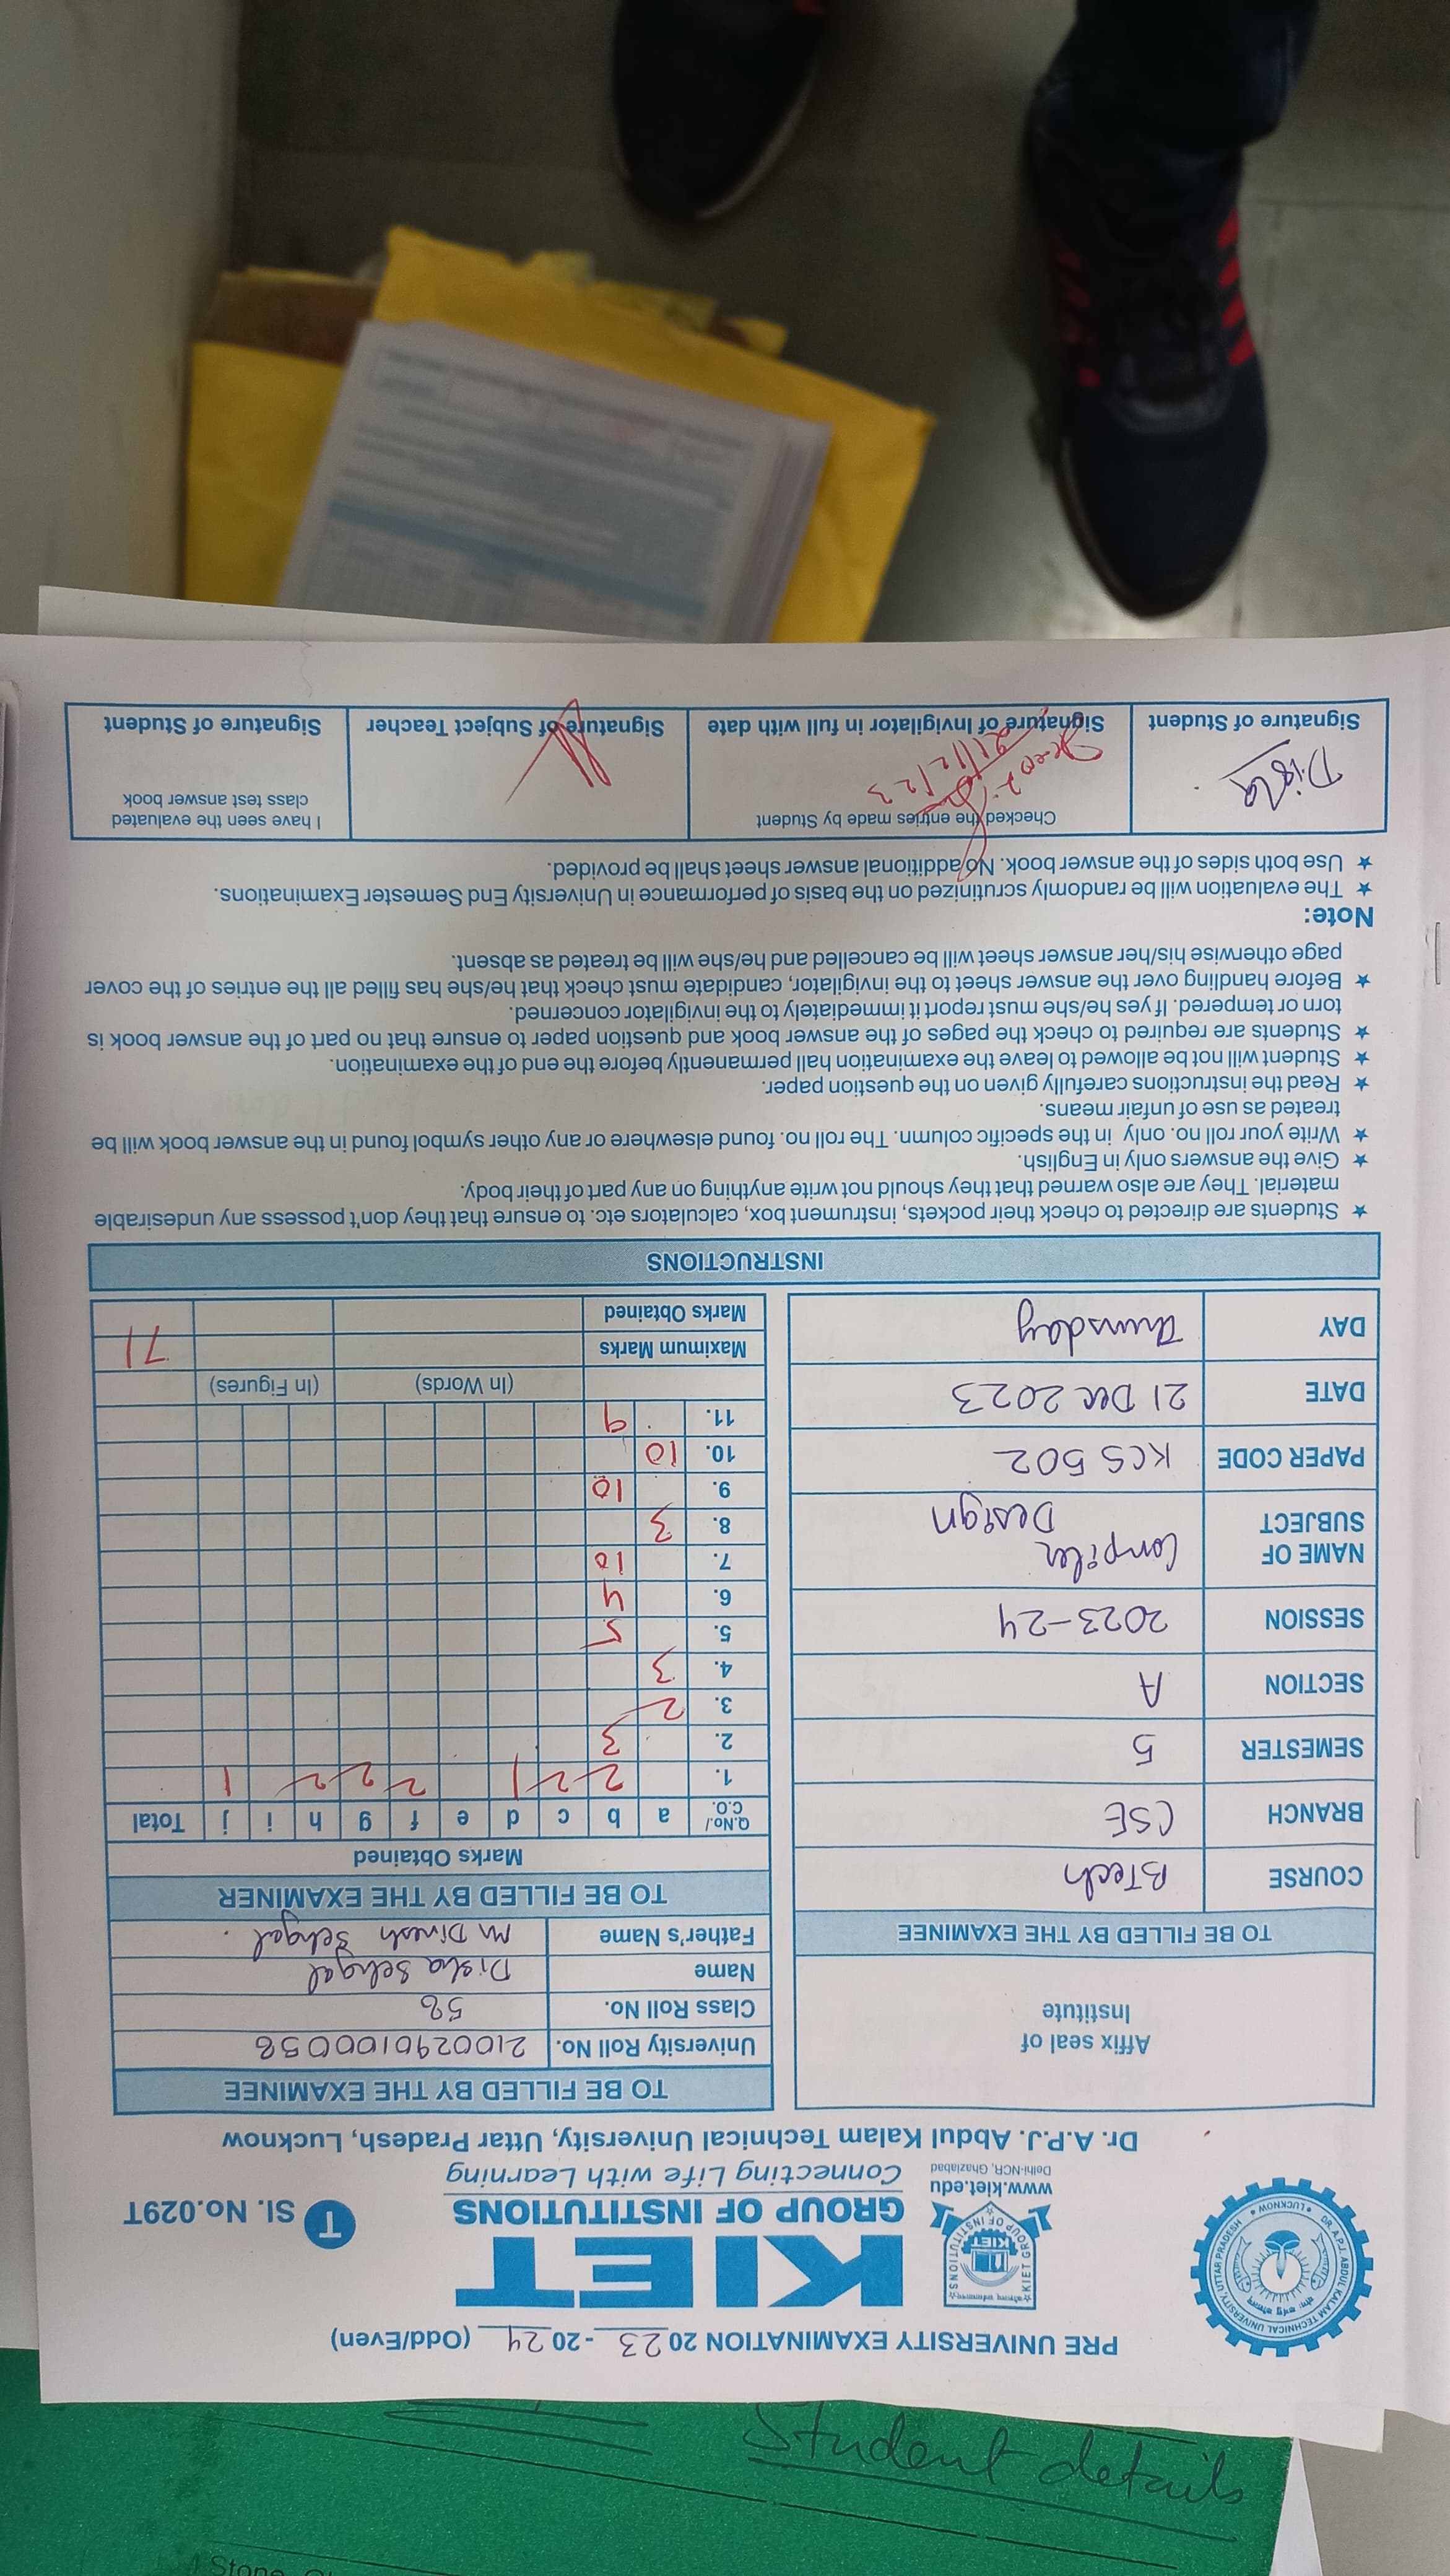 Student details
PRE UNIVERSITY EXAMINATION 2023-2024 (Odd/Even)
DR. A.P.J. ABDUL KALAM TECHNICAL UNIVERSITY, UTTAR PRADESH
LUCKNOW
KIET GROUP OF INSTITUTIONS
KIET
www.kiet.edu
Delhi-NCR, Ghaziabad
KIET
GROUP OF INSTITUTIONS
Connecting Life with Learning
T Sl. No.029T
Dr. A.P.J. Abdul Kalam Technical University, Uttar Pradesh, Lucknow
Affix seal of
Institute
TO BE FILLED BY THE EXAMINEE
COURSE BTech
BRANCH CSE
SEMESTER 5
SECTION A
SESSION 2023-24
NAME OF SUBJECT Compiler Design
PAPER CODE KCS 502
DATE 21 Dec 2023
DAY Thursday
TO BE FILLED BY THE EXAMINEE
University Roll No. 2100290100058
Class Roll No. 58
Name Disha Sehgal
Father's Name Mr Dinesh Sehgal.
TO BE FILLED BY THE EXAMINER
Marks Obtained
Q.No./C.O. a b c d e f g h i j Total
1. 2 2 1 2 2 2 1
2. 3
3. 2
4. 3
5. 5
6. 4
7. 10
8. 3
9. 10
10. 10
11. 9
(In Words) (In Figures)
Maximum Marks
71
Marks Obtained
INSTRUCTIONS
★ Students are directed to check their pockets, instrument box, calculators etc. to ensure that they don't possess any undesirable
material. They are also warned that they should not write anything on any part of their body.
★ Give the answers only in English.
★ Write your roll no. only in the specific column. The roll no. found elsewhere or any other symbol found in the answer book will be
treated as use of unfair means.
★ Read the instructions carefully given on the question paper.
★ Student will not be allowed to leave the examination hall permanently before the end of the examination.
★ Students are required to check the pages of the answer book and question paper to ensure that no part of the answer book is
torn or tempered. If yes he/she must report it immediately to the invigilator concerned.
★ Before handling over the answer sheet to the invigilator, candidate must check that he/she has filled all the entries of the cover
page otherwise his/her answer sheet will be cancelled and he/she will be treated as absent.
Note:
★ The evaluation will be randomly scrutinized on the basis of performance in University End Semester Examinations.
★ Use both sides of the answer book. No additional answer sheet shall be provided.
Disha
Signature of Student
Checked the entries made by Student
21/12/23
Signature of Invigilator in full with date
Signature of Subject Teacher
I have seen the evaluated
class test answer book
Signature of Student